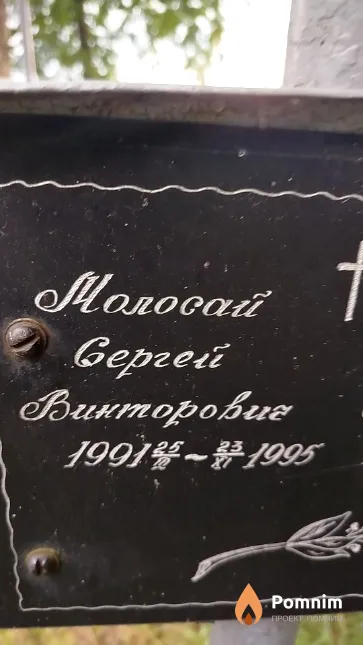 Молосай
Сергей
Викторовиг
1991 25/IX ~ 23/XI 1995
Pomnim
ПРОЕКТ ПОМНИМ